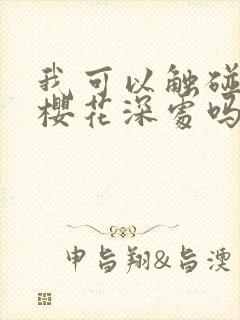 我可以触碰
樱花深处吗
申旨翔&旨湮